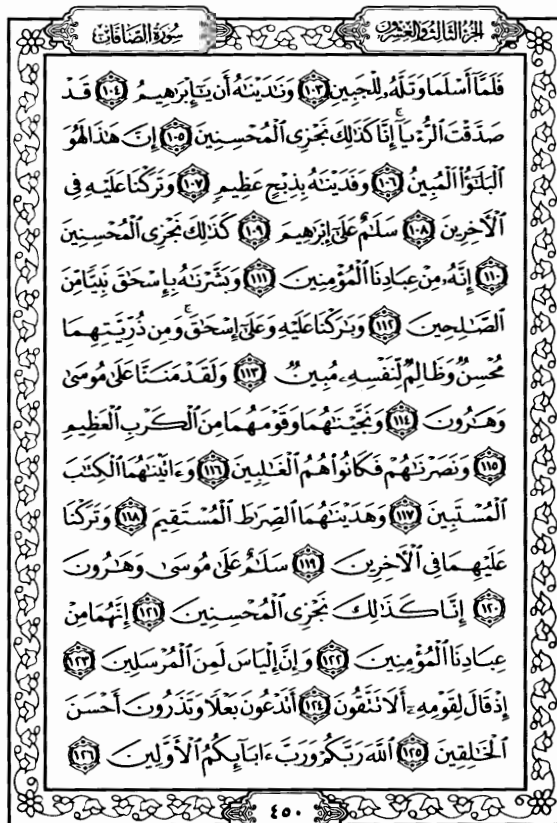 سورة الصافات
الجزء الثالث والعشرون
فَلَمَّا أَسْلَمَا وَتَلَّهُۥ لِلْجَبِينِ ١٠٣ وَنَٰدَيْنَٰهُ أَن يَٰٓإِبْرَٰهِيمُ ١٠٤ قَدْ
صَدَّقْتَ الرُّءْيَآ ۚ إِنَّا كَذَٰلِكَ نَجْزِى الْمُحْسِنِينَ ١٠٥ إِنَّ هَٰذَا لَهُوَ
الْبَلَٰٓؤُا الْمُبِينُ ١٠٦ وَفَدَيْنَٰهُ بِذِبْحٍ عَظِيمٍ ١٠٧ وَتَرَكْنَا عَلَيْهِ فِى
الْءَاخِرِينَ ١٠٨ سَلَٰمٌ عَلَىٰٓ إِبْرَٰهِيمَ ١٠٩ كَذَٰلِكَ نَجْزِى الْمُحْسِنِينَ
١١٠ إِنَّهُۥ مِنْ عِبَادِنَا الْمُؤْمِنِينَ ١١١ وَبَشَّرْنَٰهُ بِإِسْحَٰقَ نَبِيًّا مِّنَ
الصَّٰلِحِينَ ١١٢ وَبَٰرَكْنَا عَلَيْهِ وَعَلَىٰٓ إِسْحَٰقَ ۚ وَمِن ذُرِّيَّتِهِمَا
مُحْسِنٌ وَظَالِمٌ لِّنَفْسِهِۦ مُبِينٌ ١١٣ وَلَقَدْ مَنَنَّا عَلَىٰ مُوسَىٰ
وَهَٰرُونَ ١١٤ وَنَجَّيْنَٰهُمَا وَقَوْمَهُمَا مِنَ الْكَرْبِ الْعَظِيمِ
١١٥ وَنَصَرْنَٰهُمْ فَكَانُوا۟ هُمُ الْغَٰلِبِينَ ١١٦ وَءَاتَيْنَٰهُمَا الْكِتَٰبَ
الْمُسْتَبِينَ ١١٧ وَهَدَيْنَٰهُمَا الصِّرَٰطَ الْمُسْتَقِيمَ ١١٨ وَتَرَكْنَا
عَلَيْهِمَا فِى الْءَاخِرِينَ ١١٩ سَلَٰمٌ عَلَىٰ مُوسَىٰ وَهَٰرُونَ
١٢٠ إِنَّا كَذَٰلِكَ نَجْزِى الْمُحْسِنِينَ ١٢١ إِنَّهُمَا مِنْ
عِبَادِنَا الْمُؤْمِنِينَ ١٢٢ وَإِنَّ إِلْيَاسَ لَمِنَ الْمُرْسَلِينَ ١٢٣
إِذْ قَالَ لِقَوْمِهِۦٓ أَلَا تَتَّقُونَ ١٢٤ أَتَدْعُونَ بَعْلًا وَتَذَرُونَ أَحْسَنَ
الْخَٰلِقِينَ ١٢٥ اللَّهَ رَبَّكُمْ وَرَبَّ ءَابَآئِكُمُ الْأَوَّلِينَ ١٢٦
٤٥٠